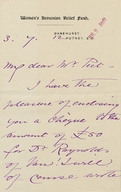 Women's Armenian Relief Fund.
DANEHURST,
PUTNEY.
3. 7.
My dear Mr.
I have the
pleasure of enclosing
you a cheque
amount of £50
for Dr Reynolds
of Van I will
of course wrote